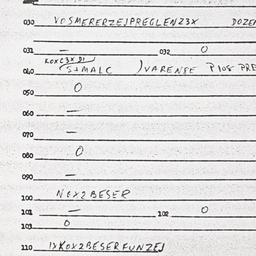 030 VOSMERERZEJPREGLENZ3X DOZEN
031 — 032 0
KOXC3X DI
040 S+MALC JVARENSE P108 PRE
050 0
060 —
070 —
080 0
090 —
100 NOX2BESER
101 — 102 0
103 0
110 1XKOX2BESERFUNZEJ